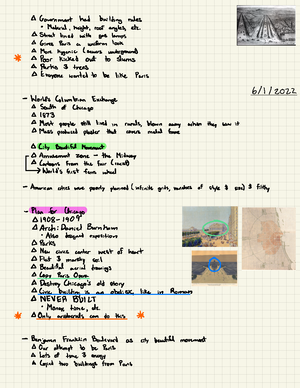 △ Government had building rules
• Material, height, roof angles, etc.
△ Street lined with gas lamps
△ Gives Paris a uniform look
△ More hygienic (sewers underground)
△ Poor kicked out to slums
△ Parks & trees
△ Everyone wanted to be like Paris
6/1/2022
- World's Columbian Exchange
△ South of Chicago
△ 1893
△ Most people still lived in rurals, blown away when they saw it
△ Mass produced plaster that covers metal frame
△ City Beautiful Movement
△ Amusement zone - the Midway
△ Cartoons from the fair (racist)
→ World's first ferris wheel
- American cities were poorly planned (infinite grids, randoms of style & size) & filthy
- Plan for Chicago
△ 1908-1909
△ Arch: Daniel Burnham
• Also designed expositions
△ Parks
△ New civic center west of heart
△ Flat & marshy soil
△ Beautiful aerial drawings
△ Copy Paris Opera
△ Destroy Chicago's old story
△ Civic building is an obelisk, like in Romans
△ NEVER BUILT
• Money, time, etc.
△ Only aristocrats can do this
- Benjamin Franklin Boulevard as city beautiful movement
△ Our attempt to be Paris
△ Lots of time & energy
△ Copied two buildings from Paris